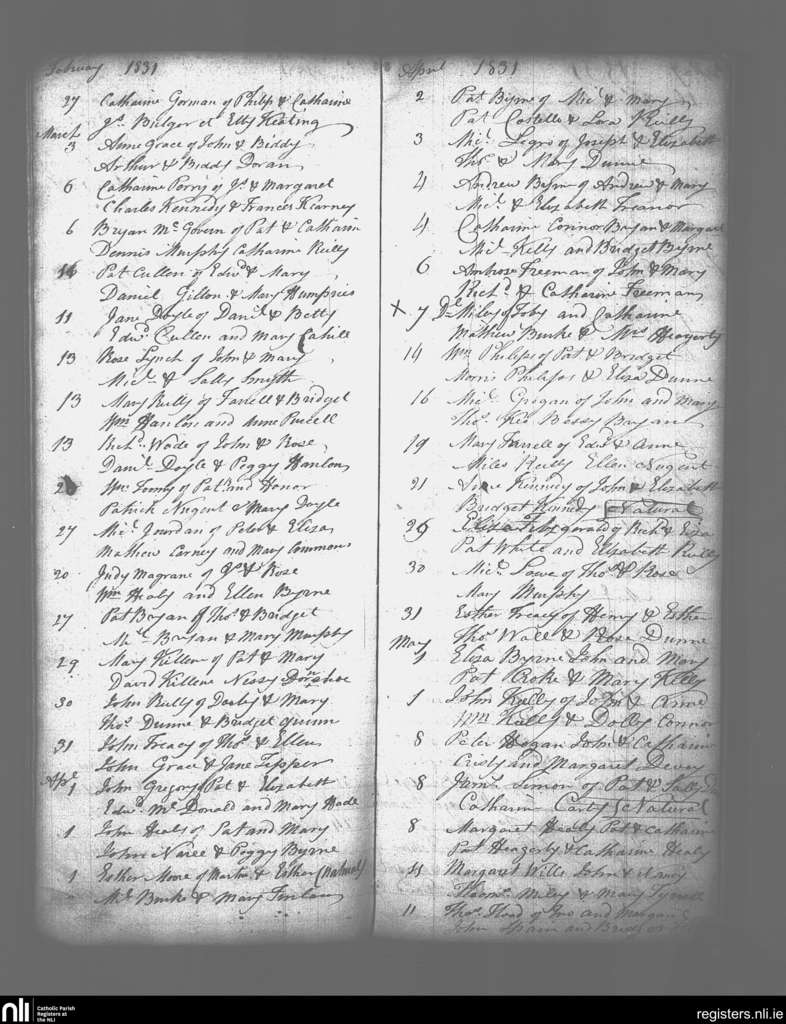 February 1831
27 Catharine Gorman of Philip & Catharine
Js. Bulger et Elly Keating
March
3 Anne Grace of John & Biddy
Arthur & Biddy Doran
6 Catharine Perry of Js. & Margaret
Charles Kennedy & Frances Kearney
6 Bryan Mc Govern of Pat & Catharin
Dennis Murphy Catharine Reilly
Pat Cullen of Edwd & Mary
Daniel Gillon & Mary Humpries
11 Jane Doyle of Danl. & Betty
Edwd Cullen and Mary Cahill
13 Rose Lynch of John & Mary
Micl. & Sally Smyth
13 Mary Reilly of Farrell & Bridget
Wm Hanlon and Anne Purcell
13 Richd. Wade of John & Rose
Danl. Doyle & Peggy Hanlon
Wm of Pat. and Honor
Patrick Nugent & Mary Doyle
27 Micl. Jourdan of Peter & Eliza
Mathew Carney and Mary Commons
20 Judy Magrane of Js & Rose
Wm Healy and Ellen Byrne
27 Pat Bryan of Thos. & Bridget
Ml. Bryan & Mary Murphy
29 Mary Killene of Pat & Mary
David Killene Nessy
30 John Reilly of Darby & Mary
Thos. Dunne & Bridget Quinn
31 John Treacy of Thos. & Ellen
John Grace & Jane Tepper
Apl.
1 John Gregory Pat & Elizabeth
Edwd. Mc Donald and Mary Wade
1 John Healy of Pat and Mary
John Naree & Peggy Byrne
1 Esther Moore of Martin & Esther (Natural)
Ml. Burke & Mary Finlay
April 1831
2 Pat. Byrne of Micl & Mary
Pat Costello & Reilly
3 Micl. Legro of Joseph & Elizabeth
Thos. & Mary Dunne
4 Andrew Byrn of Andrew & Mary
Micl. & Elizabeth Treanor
4 Catharine Connor Bryan & Margaret
Micl. Kelly and Bridget Byrne
6 Ambrose Freeman of John & Mary
Richd. & Catharine Freeman
X 7 Miley of Toby and Catharine
Mathew Burke & Mrs Heagerty
14 Wm Philips of Pat & Bridget
Morris Philips & Eliza Dunne
16 Micl. Grogan of John and Mary
Thos. Bessy Bryan
19 Mary Farrell of Edwd & Anne
Miles Reilly Ellen Nugent
21 Kennedy of John & Elizabeth
Bridget Kennedy Natural
29 Eliza Fitzgerald of Richd. & Eliza
Pat White and Elizabeth Reilly
30 Micl. Lowe of Thos. & Rose
Mary Murphy
31 Esther Treacy of Henry & Esther
Thos. Wall & Rose Dunne
May
1 Eliza Byrne John and Mary
Pat Croke & Mary Kelly
1 John Kelly of John & Anne
Wm Kelly & Dolly Connor
8 Peter Hogan John & Catharin
Cristy and Margaret Devoy
8 James of Pat & Sally
Catharine Natural
8 Margaret Healy Pat & Catharine
Pat Heagerty & Catharine Healy
11 Margaret Wills John & Nancy
Thoms. Miley & Mary
11 Thos. Flood of Jno and Margaret
John Spain and
nli Catholic Parish
Registers at
the NLI
registers.nli.ie